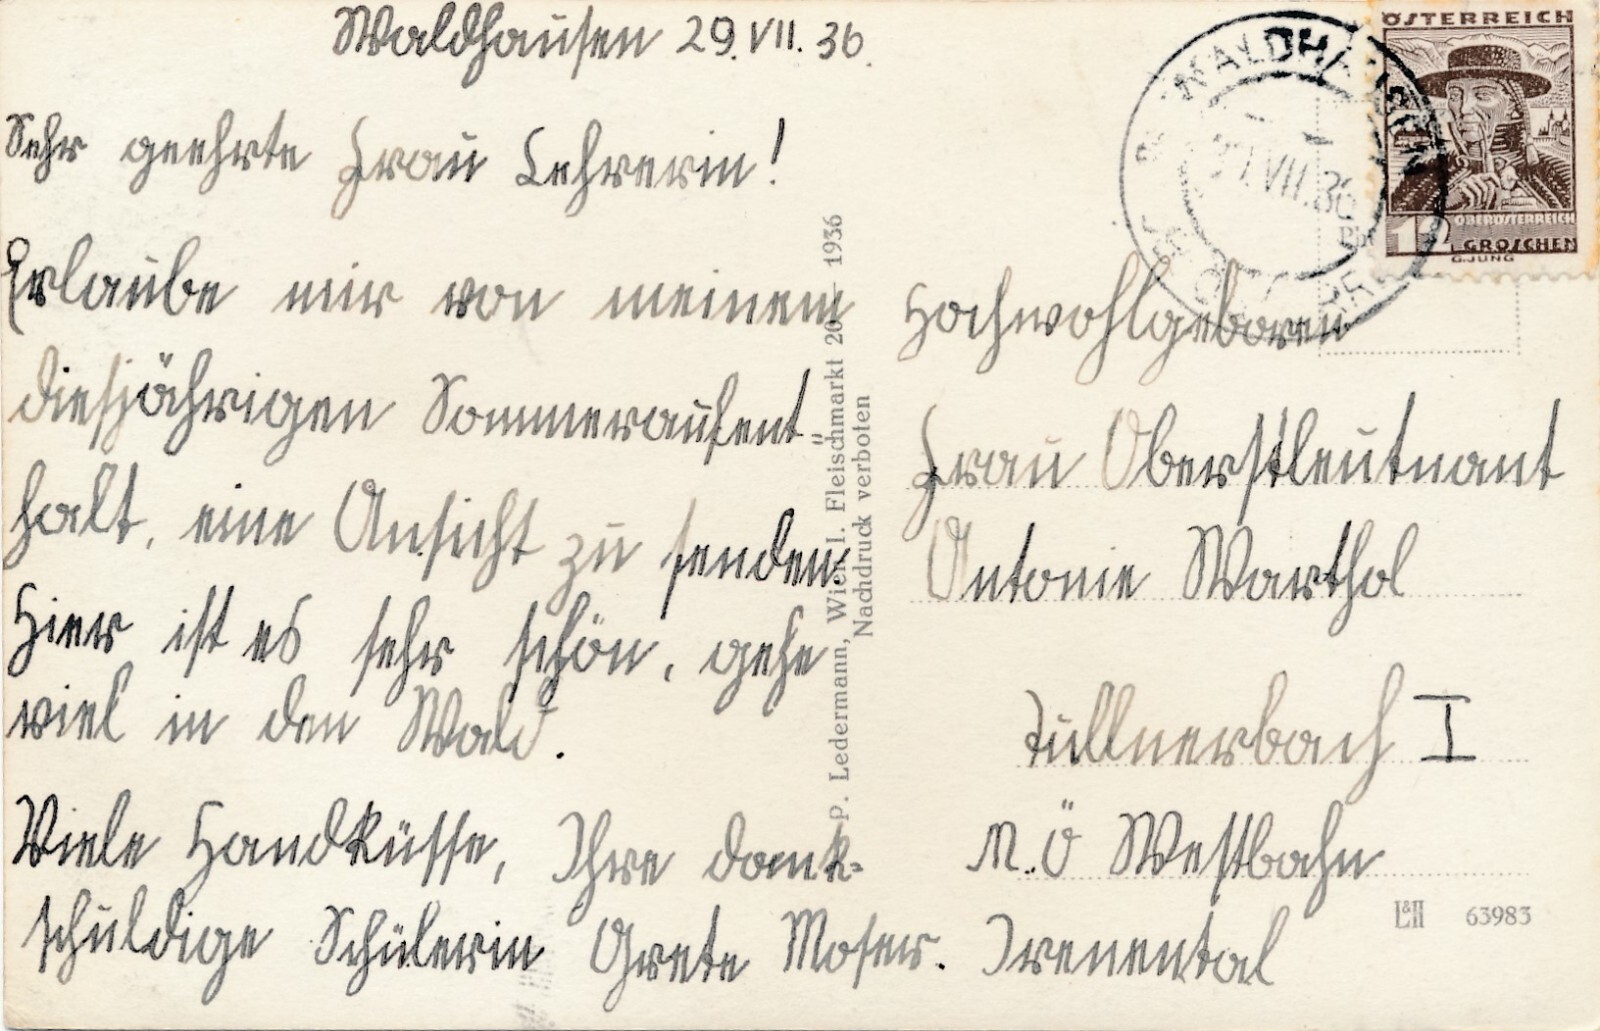 Waldhausen 29. VII. 36.
Sehr geehrte Frau Lehrerin!
Erlaube mir von meinem
diesjährigen Sommeraufent-
halt, eine Ansicht zu senden.
Hier ist es sehr schön, gehe
viel in den Wald.
Viele Handküsse, Ihre dank-
schuldige Schülerin Grete Moser.
P. Ledermann, Wien I. Fleischmarkt 20 1936
Nachdruck verboten
ÖSTERREICH
OBERÖSTERREICH
12 GROSCHEN
G.JUNG
WALDHAUSEN
VII.36
Hochwohlgeboren
Frau Oberstleutnant
Antonie Warthol
Tullnerbach I
N.Ö Westbahn
Irenental
L&H 63983